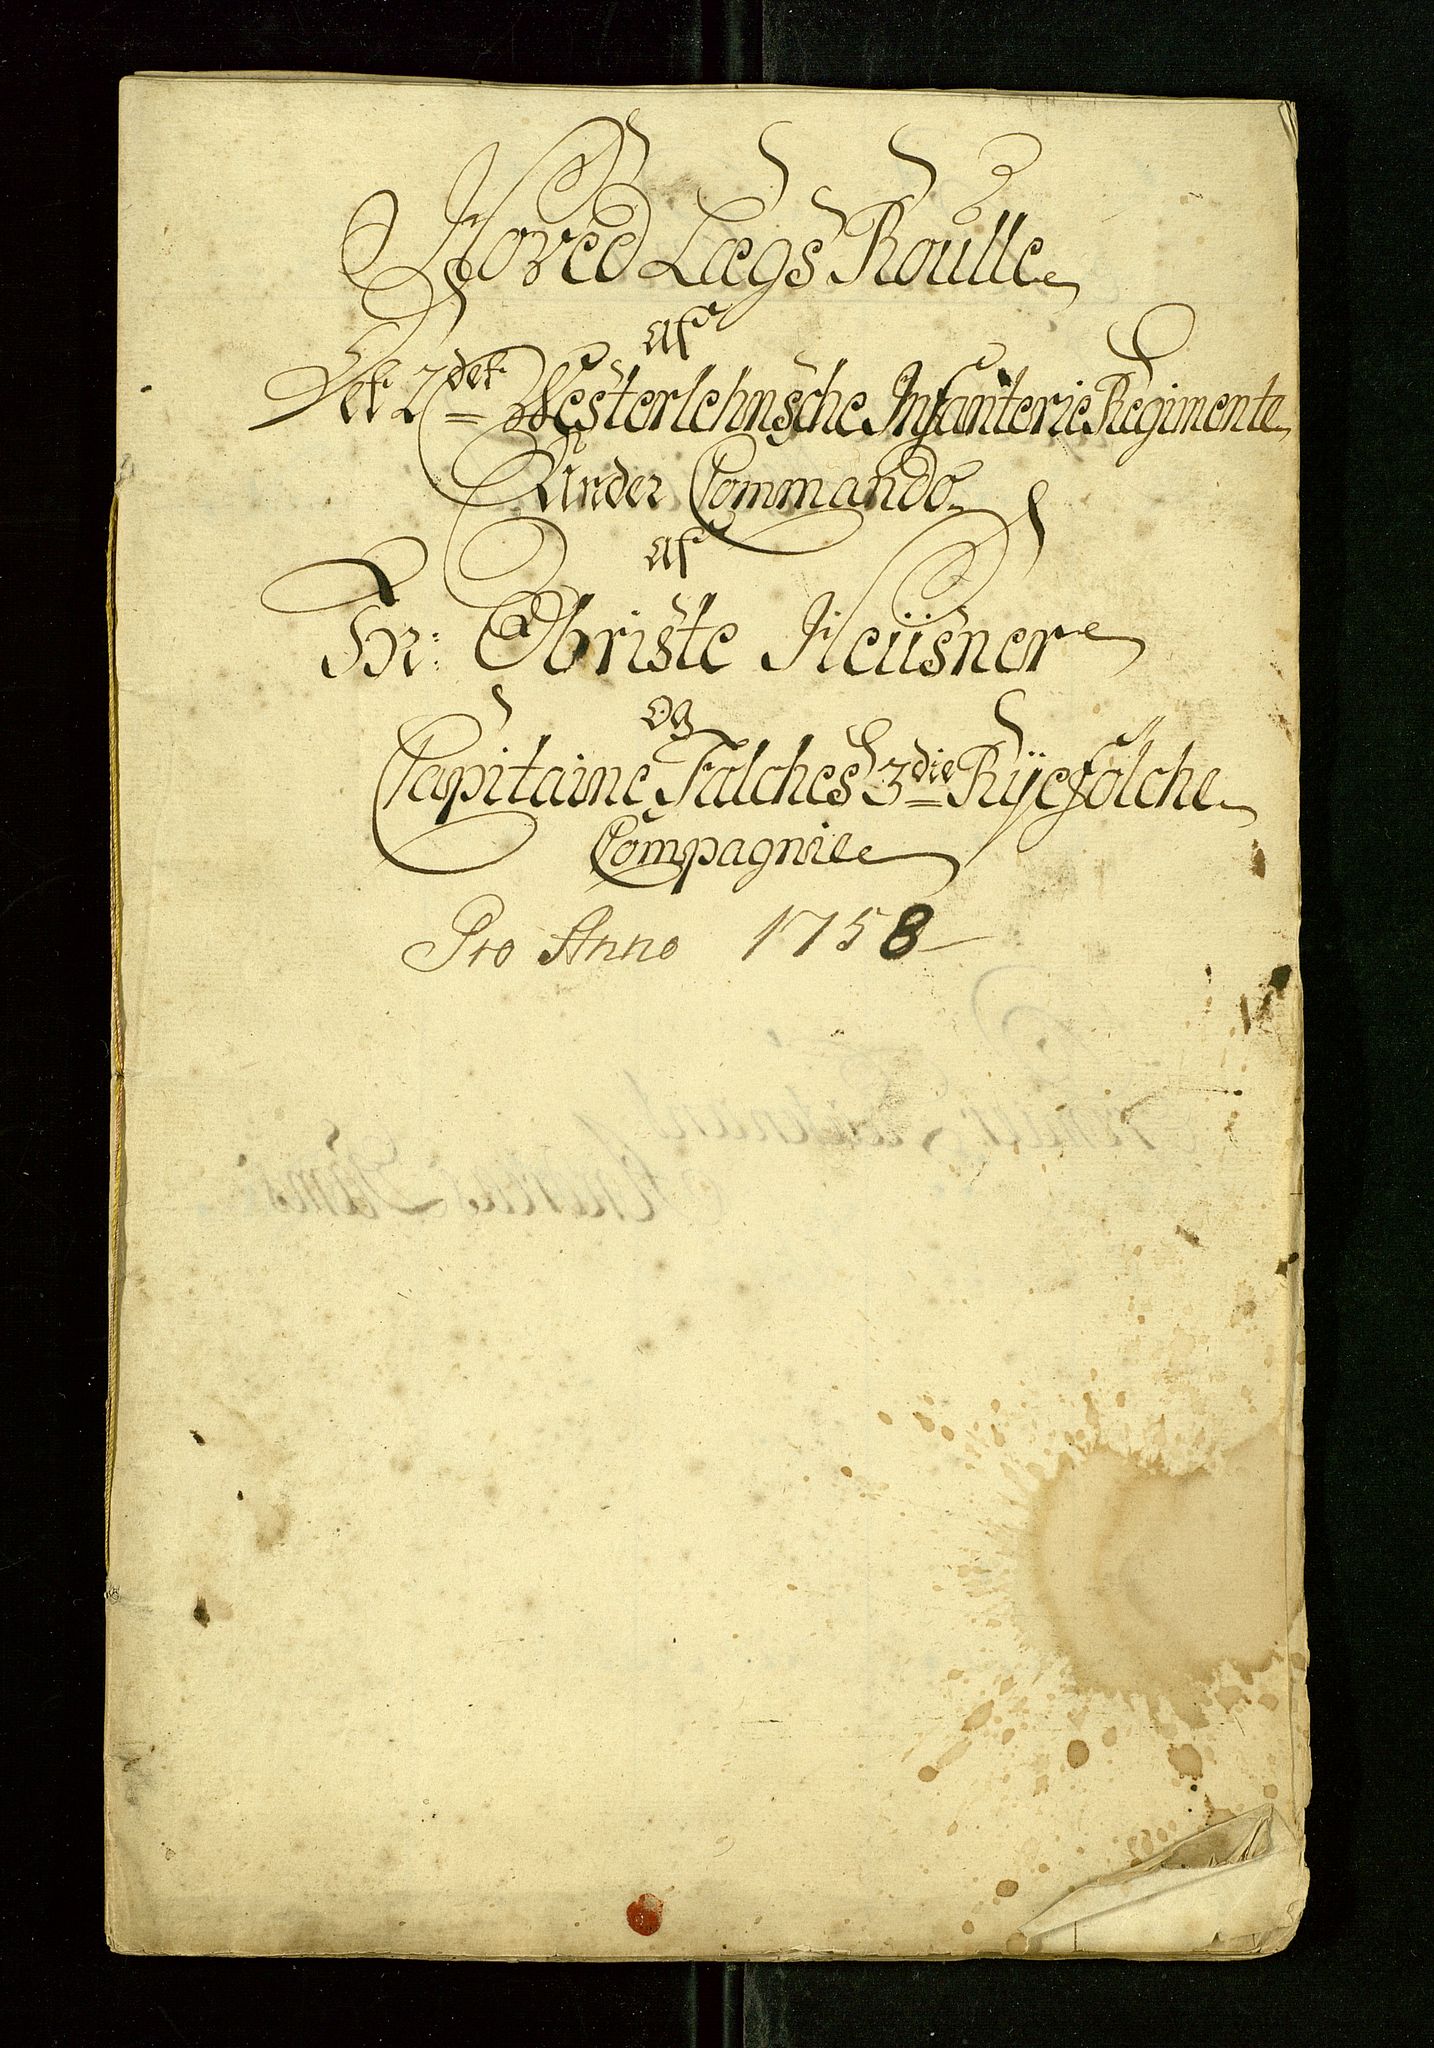 Hoved Lægs Roulle
af
Det 2det Westerlehnsche Infanterie Regimente
Under Commando
af
Hr: Obriste Heüsner
og
Capitaine Falches 3die Rÿefölche
Compagnie
Pro Anno 1758